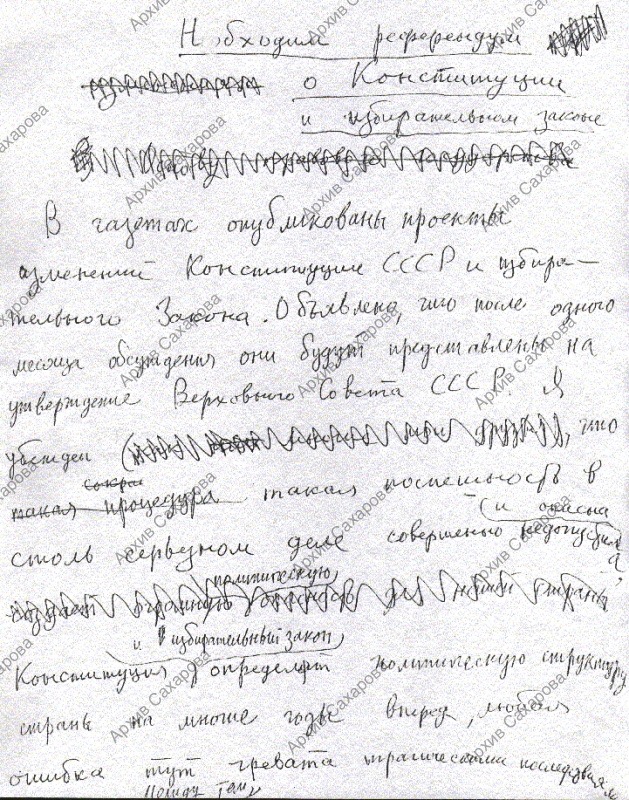 Необходим референдум
о Конституции
и избирательном законе
В газетах опубликованы проекты
изменений Конституции СССР и избира-
тельного Закона. Объявлено, что после одного
месяца обсуждения они будут представлены на
утверждение Верховного Совета СССР. Я
убежден что
такая процедура такая поспешность в
столь серьезном деле совершенно недопустима
и опасна
политическую
и избирательный закон
Конституция определяет политическую структуру
страны на многие годы вперед, любая
ошибка тут чревата трагическими последствиями
Между тем
Архив Сахарова